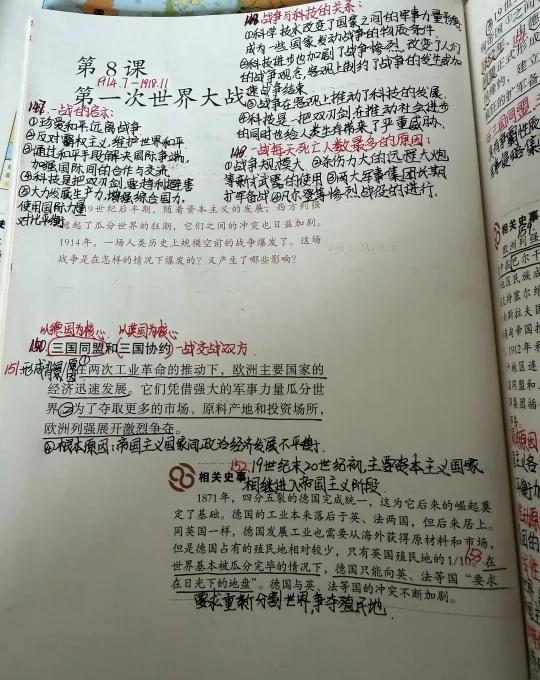 148.战争与科技的关系:
①科学技术改变了国家之间的军事力量
成为一些国家发动战争的物质条件
②科技进步也加剧了战争惨烈,改变了人们
的战争观念,客观上制约了战争的发生或加
速战争结束
③战争在客观上推动了科技的发展.
④科技是一把双刃剑,在推动社会进步
的同时也给人类生存带来了严重威胁
149.一战每天死亡人数最多的原因:
①战争规模大 ②杀伤力大的远程大炮
等新式武器的使用 ③两大军事集团长期
扩军备战 ④凡尔登等惨烈战役的进行.
第8课
1914.7-1918.11
第一次世界大战
147.一战的启示:
①珍爱和平,远离战争
②反对霸权主义,维护世界和平
③通过和平手段解决国际争端,
加强国际间的合作与交流
④科技是把双刃剑,要趋利避害
⑤大力发展生产力,增强综合国力,
使国际力量
对比平衡
19世纪后半期,随着资本主义的发展,西方列强
掀起了瓜分世界的狂潮,它们之间的冲突也日益加剧。
1914年,一场人类历史上规模空前的战争爆发了。这场
战争是在怎样的情况下爆发的?又产生了哪些影响?
以德国为核心 以英国为核心
150.三国同盟和三国协约 一战交战双方
151.形成背景/原因
①在两次工业革命的推动下,欧洲主要国家的
经济迅速发展。它们凭借强大的军事力量瓜分世
界②为了夺取更多的市场、原料产地和投资场所,
欧洲列强展开激烈争夺。
③根本原因:帝国主义国家间政治经济发展不平衡.
152.19世纪末20世纪初,主要资本主义国家
相继进入帝国主义阶段
相关史事
1871年,四分五裂的德国完成统一,这为它后来的崛起奠
定了基础。德国的工业本来落后于英、法两国,但后来居上。
同英国一样,德国发展工业也需要从海外获得原材料和市场,
但是德国占有的殖民地相对较少,只有英国殖民地的1/10。153.在
世界基本被瓜分完毕的情况下,德国只能向英、法等国“要求
在日光下的地盘”。德国与英、法等国的冲突不断加剧。
要求重新分割世界,争夺殖民地
相关史事